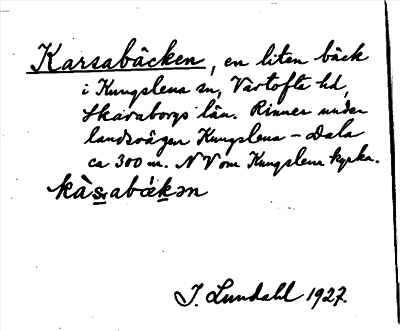 Karsabäcken, en liten bäck
i Kungslena sn, Vartofta hd,
Skaraborgs län. Rinner under
landsvägen Kungslena – Dala
ca 300 m. NV om Kungslena kyrka.
J. Lundahl 1927.